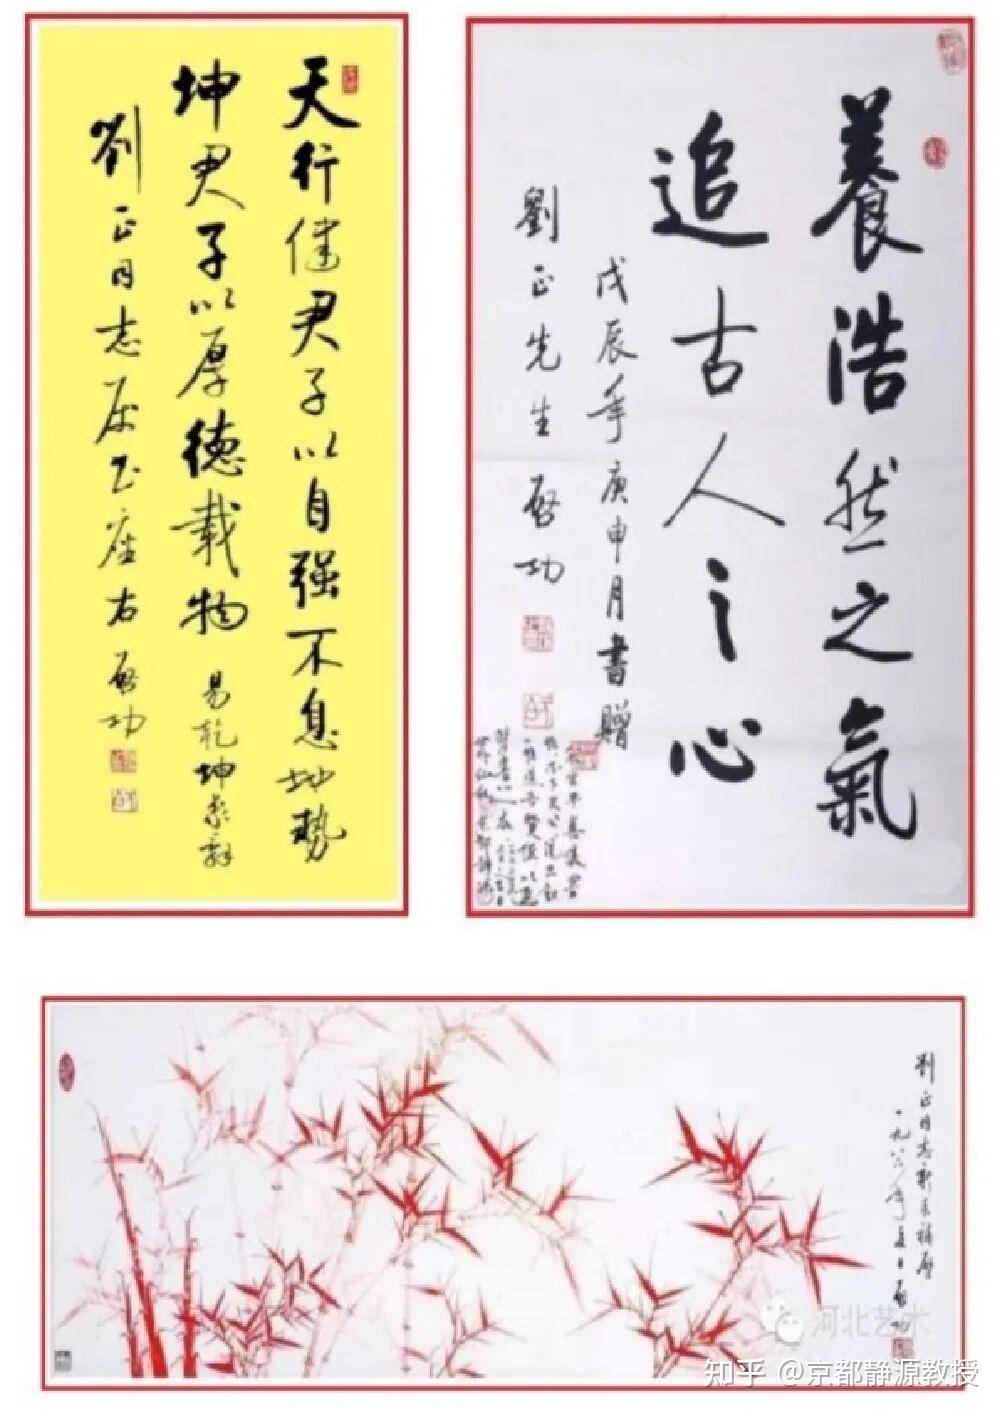 天行健君子以自强不息地势
坤君子以厚德载物
易乾坤象辞
劉正同志属书座右 启功
養浩然之氣
追古人之心
戊辰年庚申月書贈
劉正先生 启功
劉正同志新居補壁
一九八六年夏日 启功
河北艺术
知乎 @京都静源教授